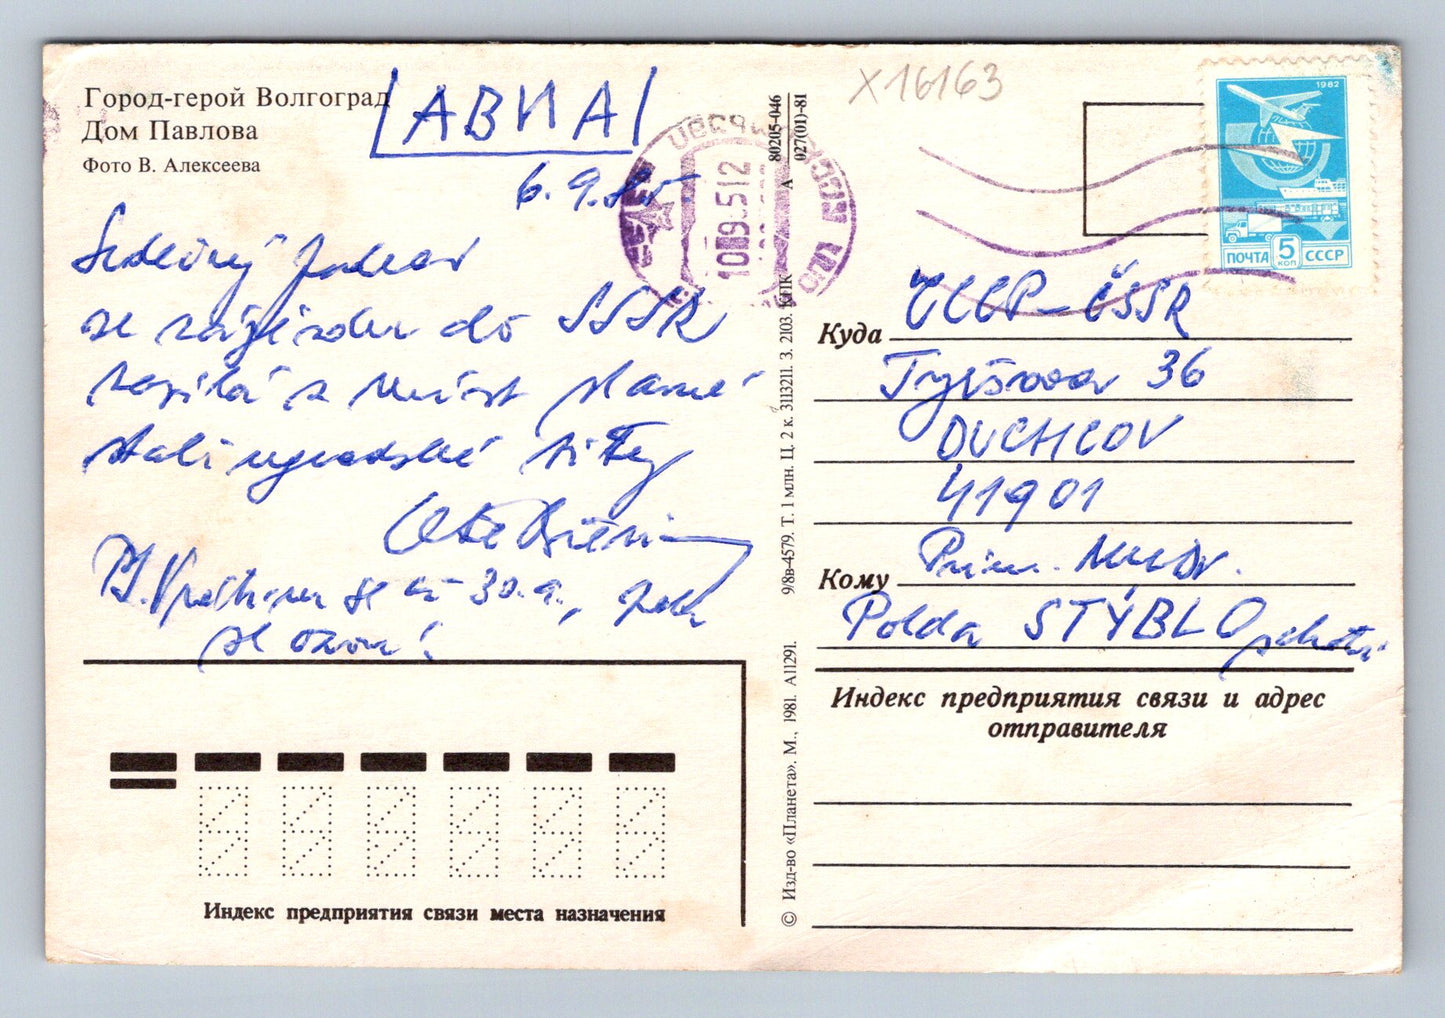 Город-герой Волгоград
Дом Павлова
Фото В. Алексеева
АВИА
6. 9. 85
Srdečný pozdrav
ze zájezdu do SSSR
zasílá z míst slavné
stalingradské bitvy
P.S. Vrátíme se až 30.9., pak
se ozvu!
X16163
80205-046
027(01)-81
А
10 09 85 12
1982
ПОЧТА 5 КОП СССР
Куда ЧССР-ČSSR
Tyršova 36
DUCHCOV
41901
Кому Prim. MUDr.
Polda STÝBLO
Индекс предприятия связи и адрес
отправителя
© Изд-во «Планета». М., 1981. А11291. 9/8в-4579. Т. 1 млн. Ц. 2 к. 3113211. З. 2103. КПК
Индекс предприятия связи места назначения